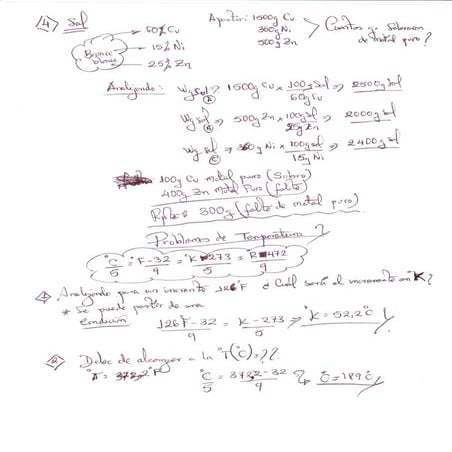 4) Sol
60% Cu
15% Ni
25% Zn
Bronce blanco
A partir: 1500g Cu
360g Ni
500g Zn
Cuantos g. Sobraron de metal puro?
Analizando: Wg sol A => 1500g Cu x 100g Sol / 60g Cu => 2500g Sol
Wg sol B => 500g Zn x 100g Sol / 25g Zn => 2000g Sol
Wg sol C => 360g Ni x 100g Sol / 15g Ni => 2400g Sol
100g Cu metal puro (Sobro)
400g Zn Metal Puro (falto)
Rpta: 300g (falto de metal puro)
Problemas de Temperatura
°C/5 = °F-32/9 = °K-273/5 = R-472/9
1. Analizando para un incremento 126°F ¿Cuál será el incremento en °K?
* Se puede partir de una
condición 126°F-32/9 = K-273/5 => °K = 52,2°C
2. Debe de alcanzar a la °T(°C)=??.
°T = 372,2°F °C/5 = 372,2-32/9 °C = 189°C